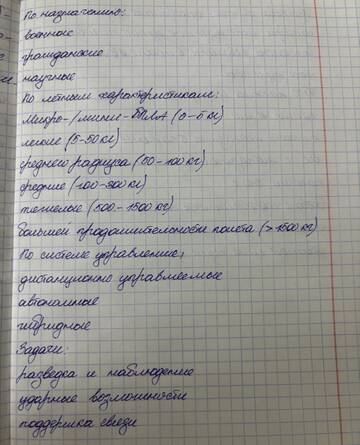 По назначению:
военные
гражданские
научные
По лётным характеристикам:
микро-/мини-БПЛА (0-5 кг)
легкие (5-50 кг)
среднего радиуса (50-100 кг)
средние (100-300 кг)
тяжелые (500-1500 кг)
большей продолжительности полета (>1500 кг)
По системе управления:
дистанционно управляемые
автономные
гибридные
Задачи:
разведка и наблюдение
ударные возможности
поддержка связи